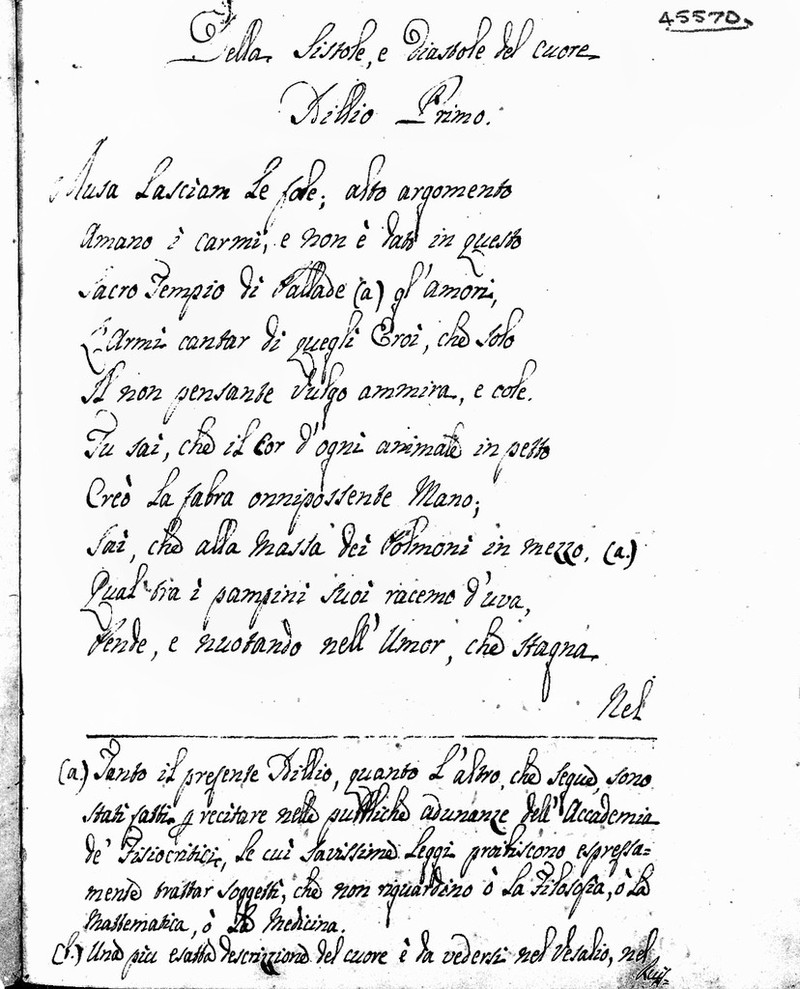 45570.
Della Sistole, e Diastole del cuore
Idillio Primo.
Musa Lasciam Le fole; alto argomento
Amano i carmi, e non è dato in questo
Sacro Tempio di Pallade (a) gl'amori,
L'Armi cantar di quegli Eroi, che solo
Il non pensante Vulgo ammira, e cole.
Tu sai, che il Cor d'ogni animale in petto
Creò La fabra onnipossente Mano;
Sai, che alla massa dei Polmoni in mezzo, (a.)
Qual tra i pampini suoi racemo d'uva,
Pende, e nuotando nell'Umor, che stagna
Nel
(a.) Tanto il presente Idillio, quanto L'altro, che segue, sono
stati fatti p recitare nelle pubbliche adunanze dell'Accademia
de' Fisiocritici, Le cui savissime Leggi proibiscono espressa=
mente trattar soggetti, che non riguardino ò La Filosofia, ò La
Mattematica, ò La Medicina.
(b.) Una più esatta descrizzione del cuore è da vedersi nel Vesalio, nel